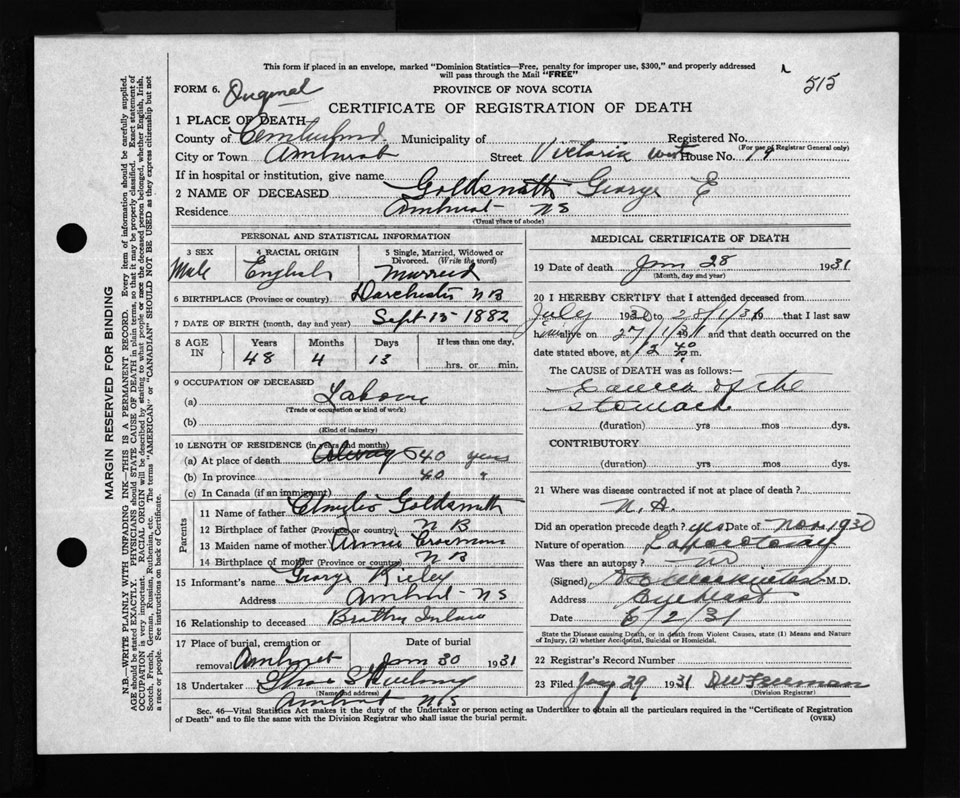 This form if placed in an envelope, marked "Dominion Statistics—Free, penalty for improper use, $300," and properly addressed
will pass through the Mail "FREE"
515
FORM 6. Original
PROVINCE OF NOVA SCOTIA
CERTIFICATE OF REGISTRATION OF DEATH
1 PLACE OF DEATH
County of Cumberland Municipality of Registered No.
(For use of Registrar General only)
City or Town Amherst Street Victoria West House No. 19
If in hospital or institution, give name
2 NAME OF DECEASED Goldsmith George E
Residence Amherst NS
(Usual place of abode)
MARGIN RESERVED FOR BINDING
N.B—WRITE PLAINLY WITH UNFADING INK—THIS IS A PERMANENT RECORD. Every item of information should be carefully supplied.
AGE should be stated EXACTLY. PHYSICIANS should STATE CAUSE OF DEATH in plain terms, so that it may be properly classified. Exact statement of
OCCUPATION is very important. RACIAL ORIGIN will be described by stating to what people or race the deceased person belonged, whether English, Irish,
Scotch, French, German, Russian, Ruthenian, etc. The terms "AMERICAN" or "CANADIAN" SHOULD NOT BE USED as they express citizenship but not
a race or people. See instructions on back of Certificate.
PERSONAL AND STATISTICAL INFORMATION
3 SEX
Male
4 RACIAL ORIGIN
English
5 Single, Married, Widowed or
Divorced. (Write the word)
Married
6 BIRTHPLACE (Province or country) Dorchester NB
7 DATE OF BIRTH (month, day and year) Sept 15 1882
8 AGE IN
Years Months Days If less than one day,
48 4 13 hrs. or min.
9 OCCUPATION OF DECEASED
(a) Labour
(Trade or occupation or kind of work)
(b)
(Kind of industry)
10 LENGTH OF RESIDENCE (in years and months)
(a) At place of death 40 years
(b) In province 40 "
(c) In Canada (if an immigrant)
Parents
11 Name of father Goldsmith
12 Birthplace of father (Province or country) NB
13 Maiden name of mother Annie
14 Birthplace of mother (Province or country) NB
15 Informant's name George Riley
Address Amherst NS
16 Relationship to deceased Brother Inlaw
17 Place of burial, cremation or Date of burial
removal Amherst Jan 30 1931
18 Undertaker
(Name and address)
Amherst NS
MEDICAL CERTIFICATE OF DEATH
19 Date of death Jan 28 1931
(Month, day and year)
20 I HEREBY CERTIFY that I attended deceased from
July 1930 to 28/1/31 that I last saw
him alive on 27/1/31 and that death occurred on
date stated above, at 12 m.
The CAUSE of DEATH was as follows:—
Cancer of the
Stomach
(duration) yrs mos dys.
CONTRIBUTORY
(duration) yrs mos dys.
21 Where was disease contracted if not at place of death?
N.A.
Did an operation precede death? yes Date of Nov. 1930
Nature of operation Laporotomy
Was there an autopsy? no
(Signed) Mackintosh M.D.
Address
Date 2/31
State the Disease causing Death, or in death from Violent Causes, state (1) Means and Nature
of Injury, (2) whether Accidental, Suicidal or Homicidal.
22 Registrar's Record Number
23 Filed Jany 29 1931 DW Freeman
(Division Registrar)
Sec. 46—Vital Statistics Act makes it the duty of the Undertaker or person acting as Undertaker to obtain all the particulars required in the "Certificate of Registration
of Death" and to file the same with the Division Registrar who shall issue the burial permit.
(OVER)